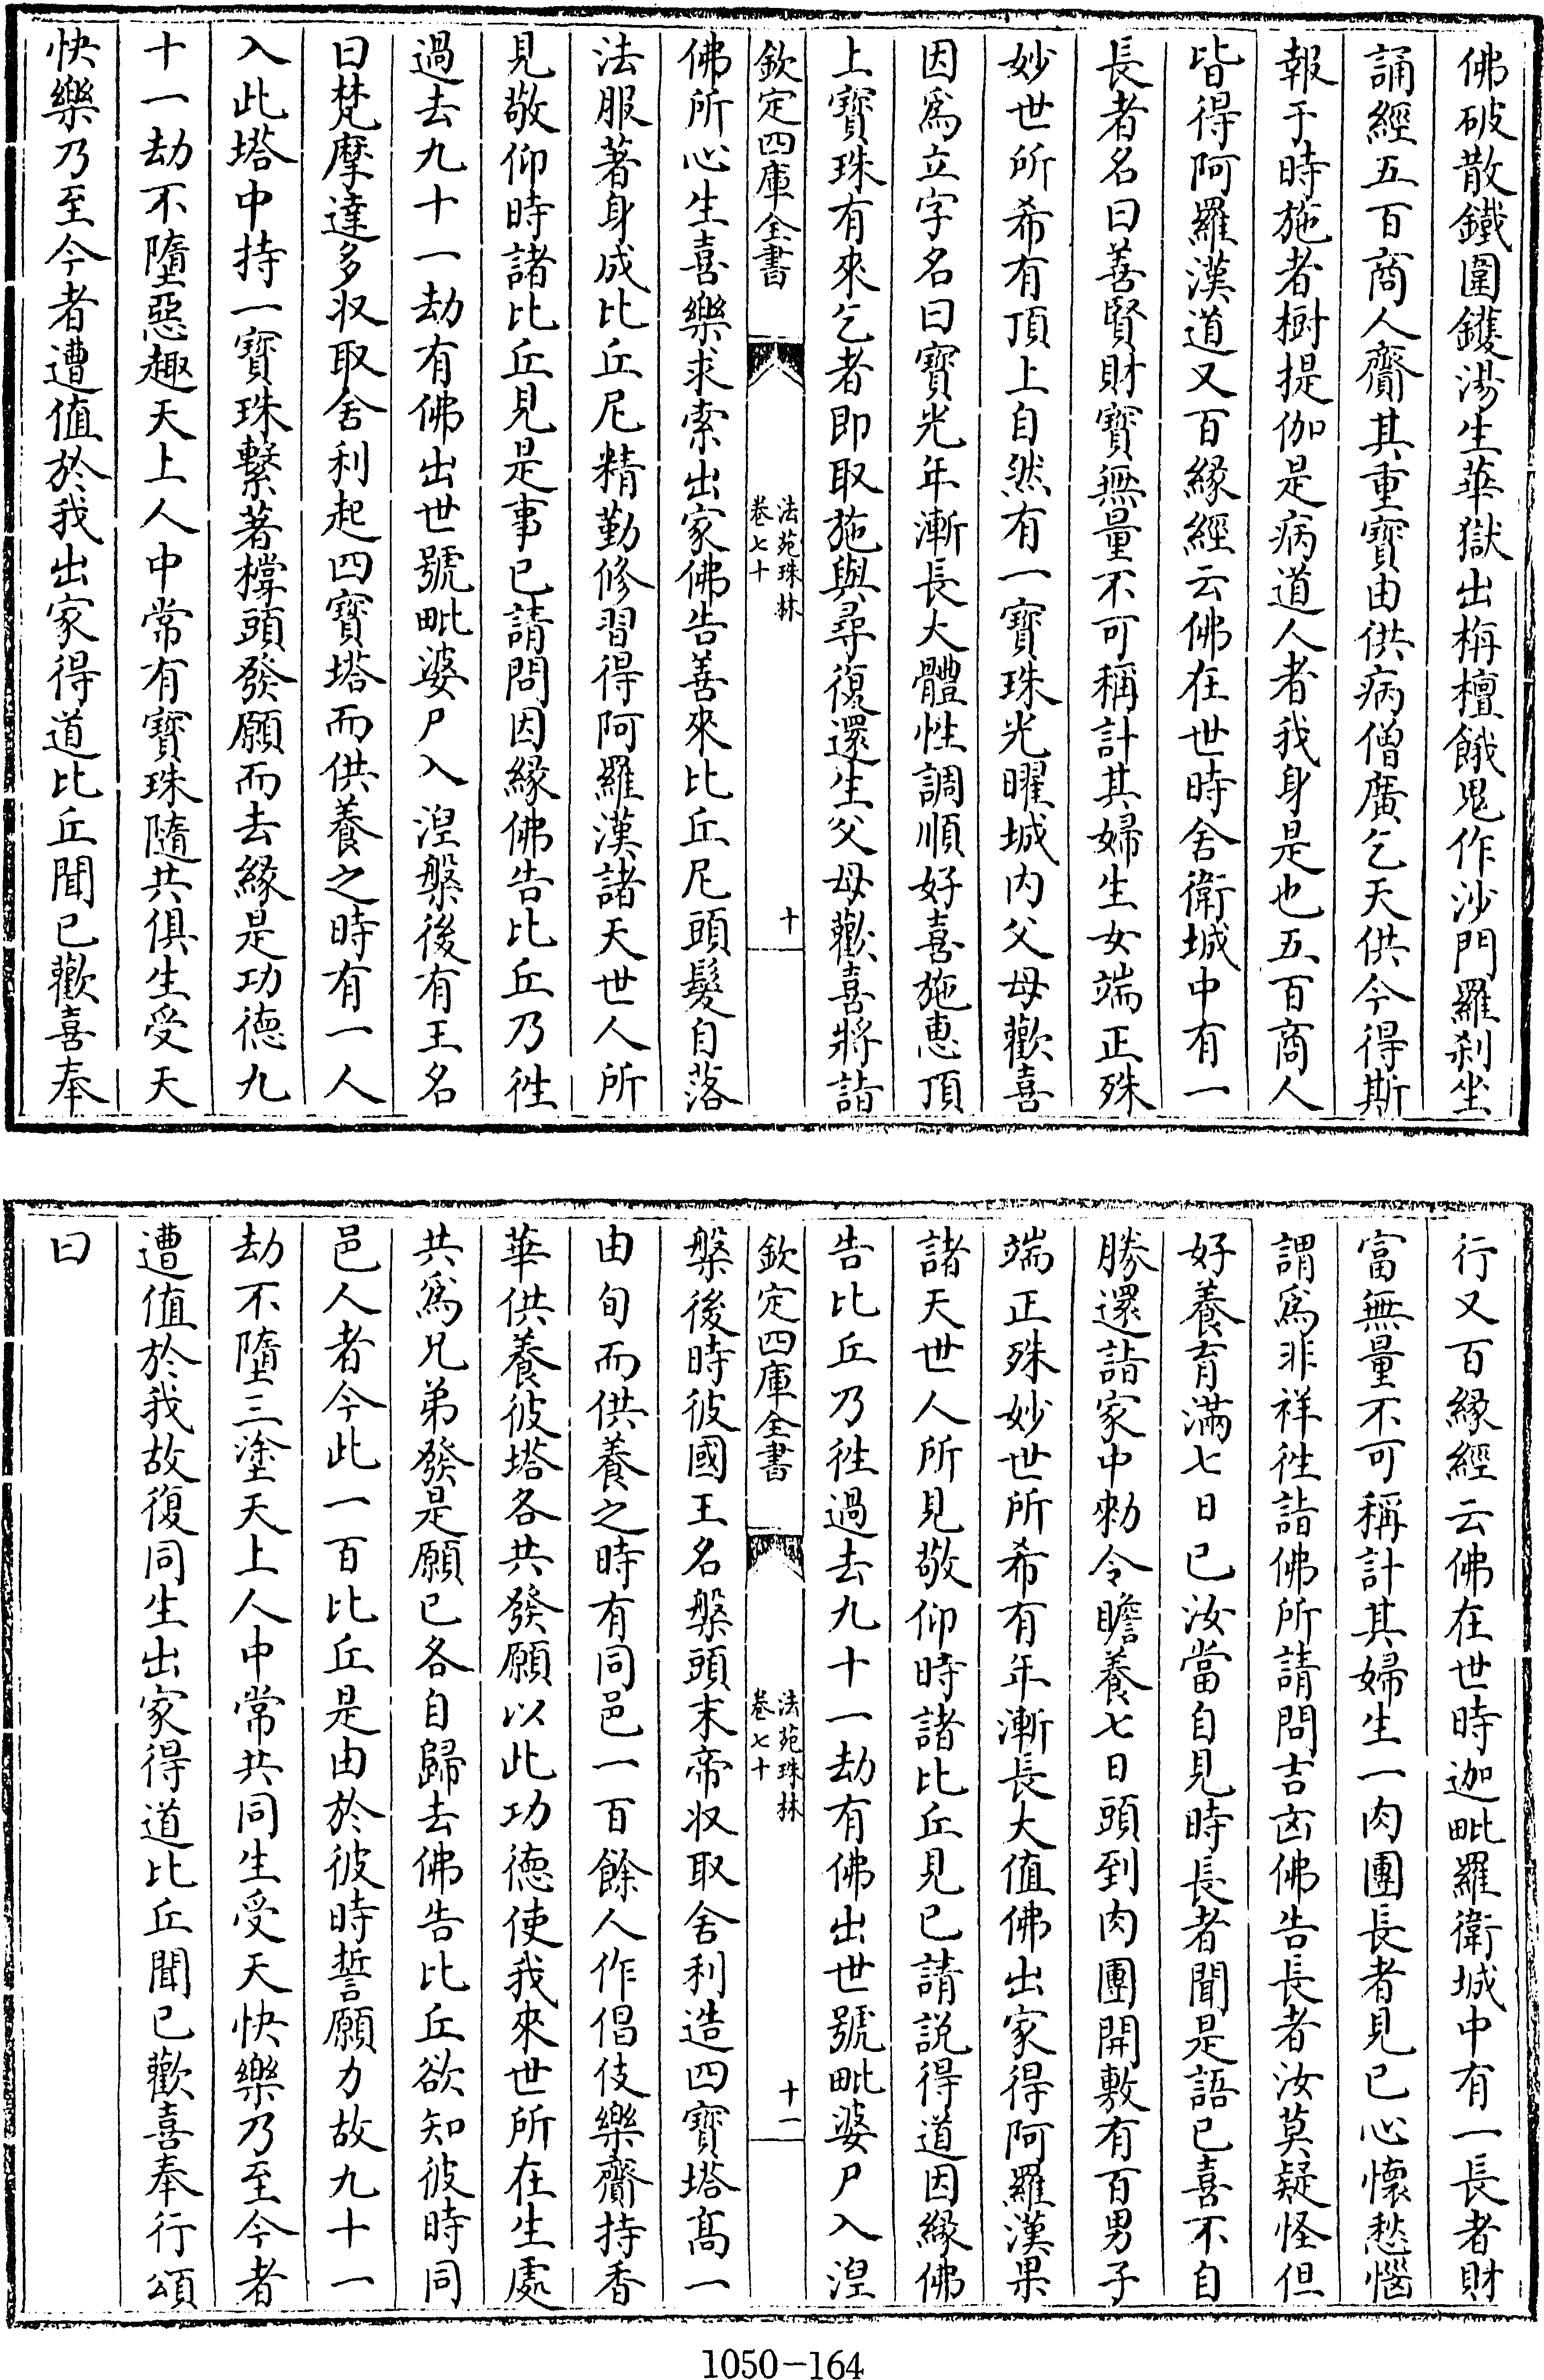 佛破散鐵圍鑊湯生華獄出栴檀餓鬼作沙門羅刹坐
誦經五百商人齎其重寶由供病僧廣乞天供今得斯
報于時施者樹提伽是病道人者我身是也五百商人
皆得阿羅漢道又百緣經云佛在世時舍衛城中有一
長者名曰善賢財寶無量不可稱計其婦生女端正殊
妙世所希有頂上自然有一寶珠光曜城内父母歡喜
因爲立字名曰寶光年漸長大體性調順好喜施惠頂
上寶珠有來乞者即取施與尋復還生父母歡喜將詣
欽定四庫全書
法苑珠林
卷七十
十
佛所心生喜樂求索出家佛告善來比丘尼頭髮自落
法服著身成比丘尼精勤修習得阿羅漢諸天世人所
見敬仰時諸比丘見是事已請問因緣佛告比丘乃徃
過去九十一劫有佛出世號毗婆尸入湼槃後有王名
曰梵摩達多収取舍利起四寶塔而供養之時有一人
入此塔中持一寶珠繫著棖頭發願而去緣是功德九
十一劫不墮惡趣天上人中常有寶珠隨共俱生受天
快樂乃至今者遭值於我出家得道比丘聞已歡喜奉
行又百緣經云佛在世時迦毗羅衛城中有一長者財
富無量不可稱計其婦生一肉團長者見已心懷愁惱
謂爲非祥徃詣佛所請問吉凶佛告長者汝莫疑怪但
好養育滿七日已汝當自見時長者聞是語已喜不自
勝還詣家中勑令瞻養七日頭到肉團開敷有百男子
端正殊妙世所希有年漸長大值佛出家得阿羅漢果
諸天世人所見敬仰時諸比丘見已請説得道因緣佛
告比丘乃徃過去九十一劫有佛出世號毗婆尸入湼
欽定四庫全書
法苑珠林
卷七十
十一
槃後時彼國王名槃頭末帝収取舍利造四寶塔髙一
由旬而供養之時有同邑一百餘人作倡伎樂齎持香
華供養彼塔各共發願以此功德使我來世所在生處
共爲兄弟發是願已各自歸去佛告比丘欲知彼時同
邑人者今此一百比丘是由於彼時誓願力故九十一
劫不墮三塗天上人中常共同生受天快樂乃至今者
遭值於我故復同生出家得道比丘聞已歡喜奉行頌
曰
1050-164